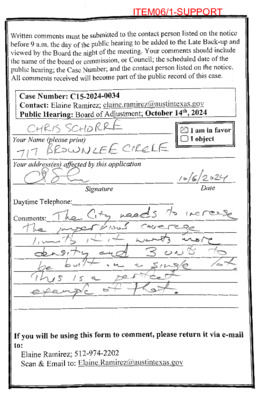 ITEM06/1-SUPPORT
Written comments must be submitted to the contact person listed on the notice
before 9 a.m. the day of the public hearing to be added to the Late Back-up and
viewed by the Board the night of the meeting. Your comments should include
the name of the board or commission, or Council; the scheduled date of the
public hearing; the Case Number; and the contact person listed on the notice.
All comments received will become part of the public record of this case.
Case Number: C15-2024-0034
Contact: Elaine Ramirez; elaine.ramirez@austintexas.gov
Public Hearing: Board of Adjustment; October 14th, 2024
CHRIS SCHORRE
Your Name (please print)
I am in favor
I object
717 BROWNLEE CIRCLE
Your address(es) affected by this application
10/6/2024
Signature
Date
Daytime Telephone:
Comments: The City needs to increase
the impervious coverage
limits if it wants more
density and 3 units to
be built on a single lot.
This is a perfect
example of that.
If you will be using this form to comment, please return it via e-mail
to:
Elaine Ramirez; 512-974-2202
Scan & Email to: Elaine.Ramirez@austintexas.gov